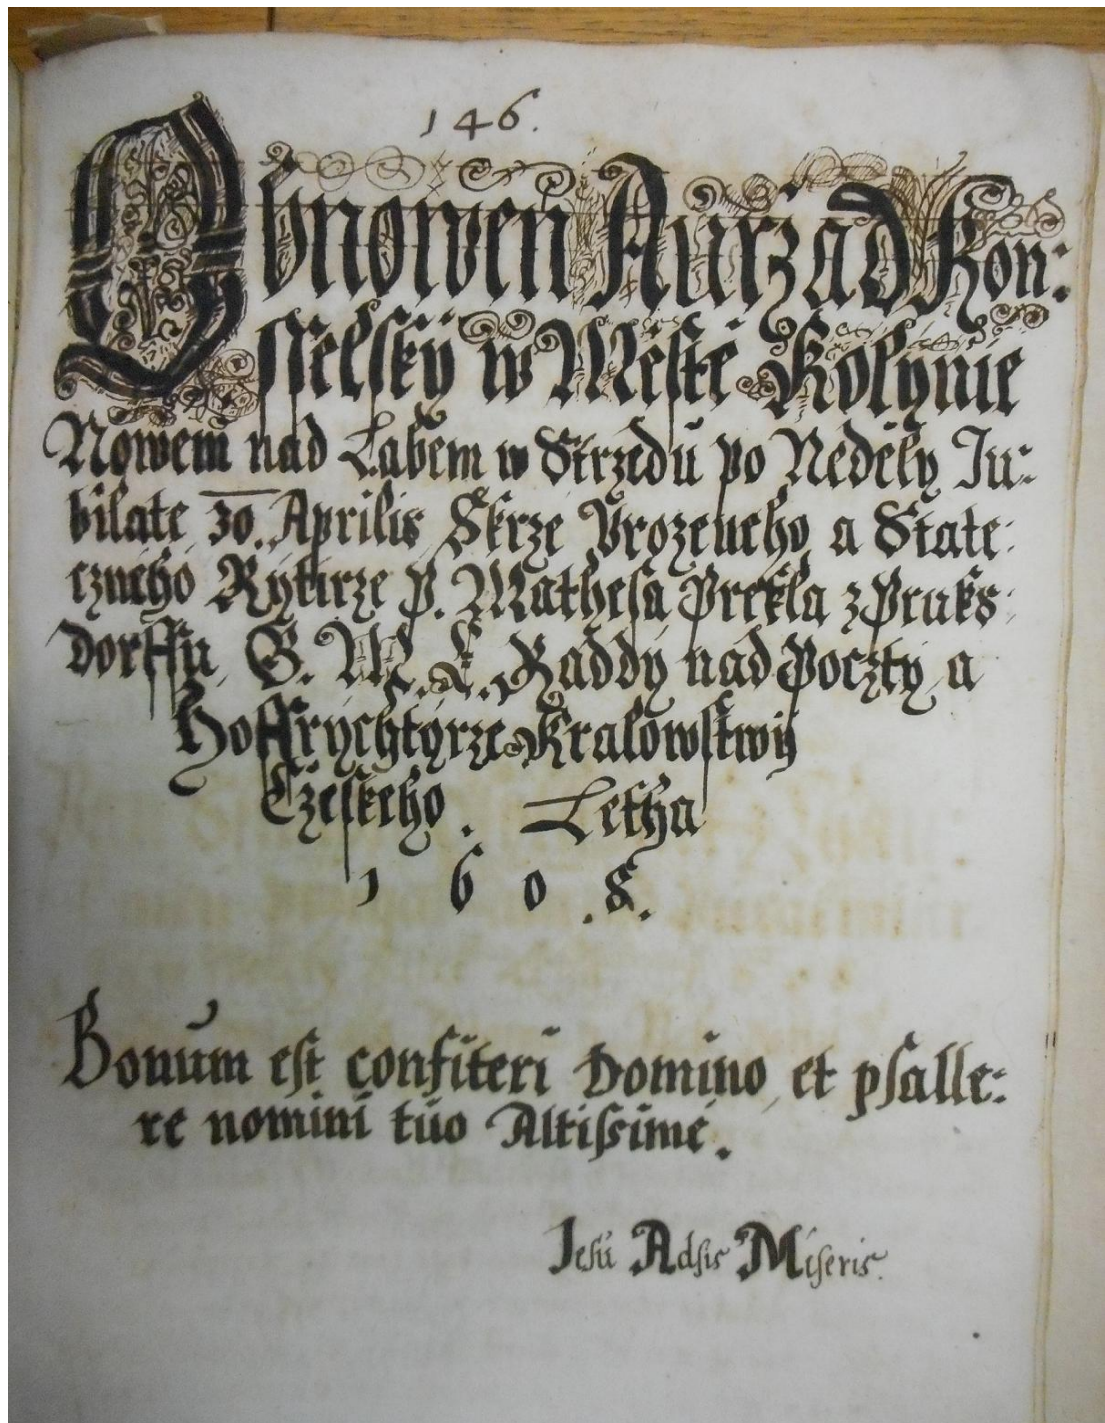 146.
Obnowen Aurzad Kon:
sselsky w Miestě Kolynie
Nowem nad Labem w Strzedu po Neděly Ju:
bilate 30. Aprilis Skrze Vrozeneho a State:
czneho Rytirze P. Mathesa Prekla z Pruks:
dorffu, G. M. C. Raddy nad Poczty a
Hoffrychtyrze Kralowstwij
Czeskeho. Letha
1608.
Bonum est confiteri Domino et psalle:
re nomini tuo Altissime.
Jesu Adsis Miseris.